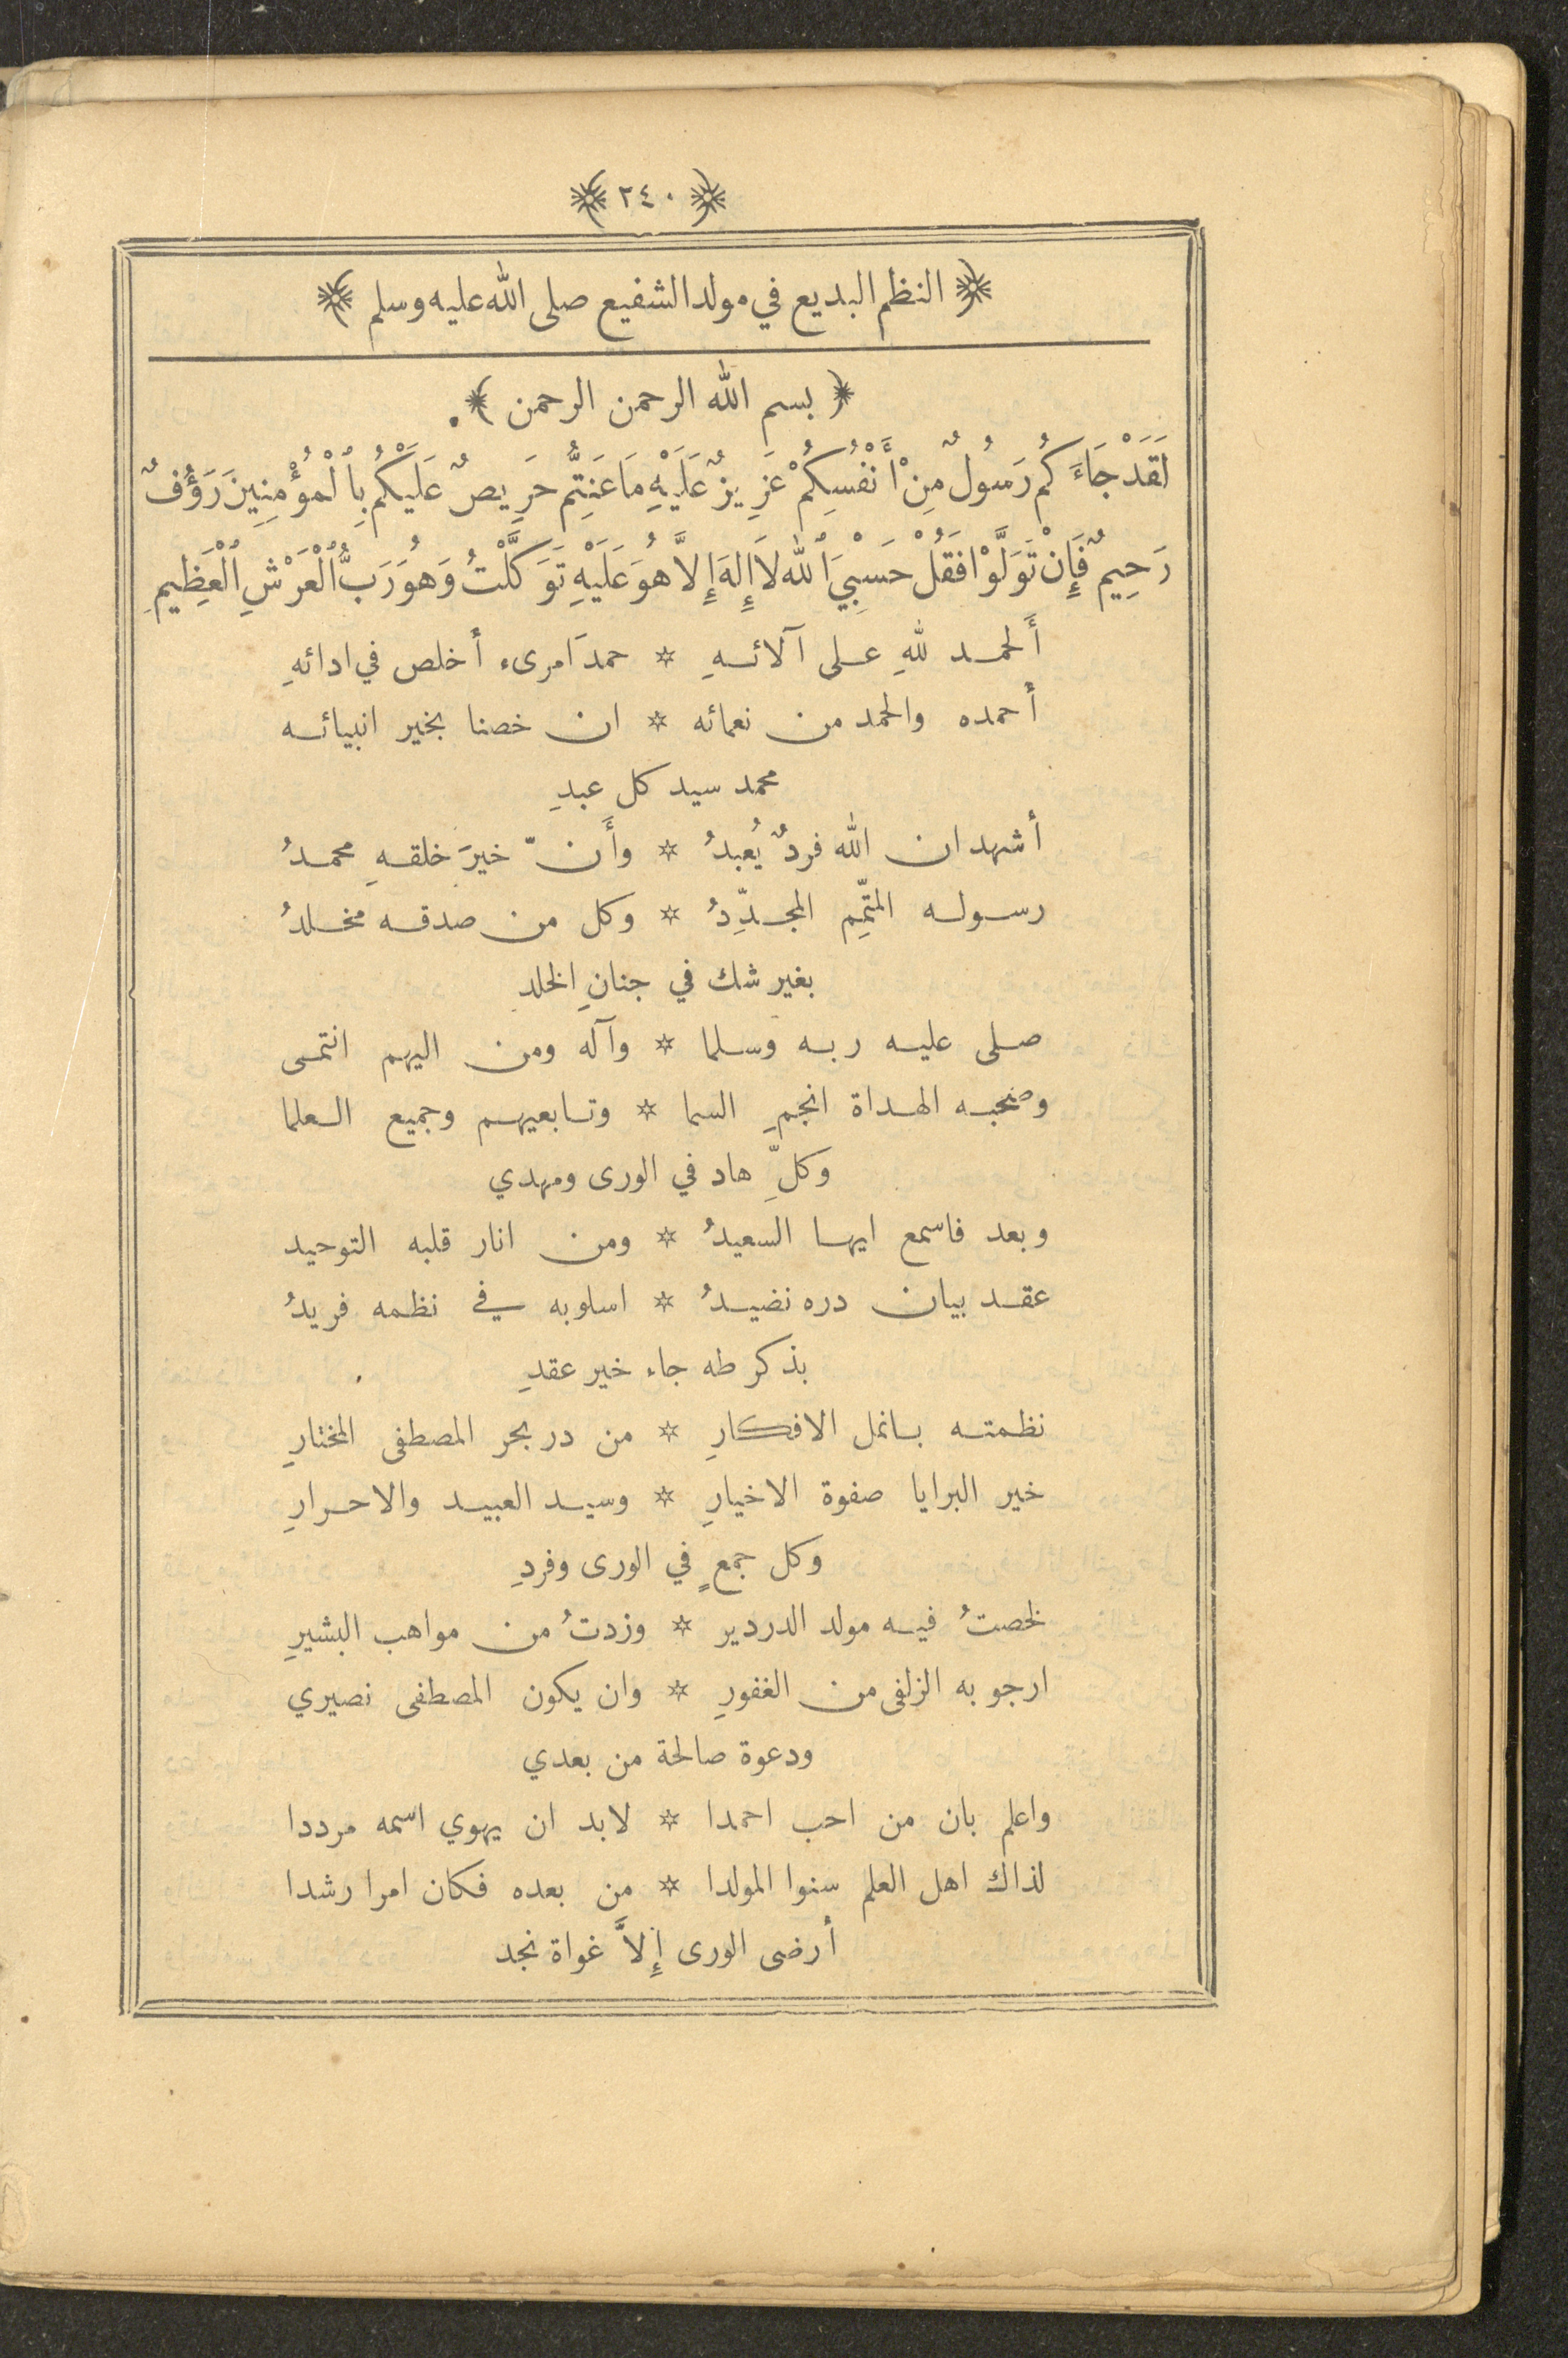 ﴿ ٢٤٠ ﴾
﴿ النظم البديع في مولد الشفيع صلى الله عليه وسلم ﴾
﴿ بسم الله الرحمن الرحمن ﴾.
لَقَدْ جَاءَكُم رَسُولٌ مِنْ أَنْفُسِكُمْ عَزِيزٌ عَلَيْهِ مَا عَنِتُّمْ حَرِيصٌ عَلَيْكُمْ بِٱلْمُؤْمِنِينَ رَؤُفٌ
رَحِيمٌ فَإِنْ تَوَلَّوْا فَقُلْ حَسْبِيَ ٱلله لَا إِلهَ إِلاَّ هُوَ عَلَيْهِ تَوَكَّلْتُ وَهُوَ رَبُّ ٱلْعَرْشِ ٱلْعَظِيمِ
أَلحمد للهِ على آلائهِ * حمدَ امرىء أخلص في ادائهِ
أحمده والحمد من نعمائه * ان خصنا بخير انبيائه
محمد سيد كل عبدِ
أشهد ان الله فردٌ يُعبدُ * وأَنّ خيرَ خلقهِ محمدُ
رسوله المتمِّم المجدِّدُ * وكل من صدقه مخلدُ
بغير شك في جنانِ الخلد
صلى عليه ربه وسلما * وآله ومن اليهم انتمى
وصحبه الهداة انجمِ السما * وتابعيهم وجميع العلما
وكلِّ هاد في الورى ومهدي
وبعد فاسمع ايها السعيدُ * ومن انار قلبه التوحيد
عقد بيان دره نضيدُ * اسلوبه في نظمه فريدُ
بذكر طه جاء خير عقدِ
نظمته بانمل الافكارِ * من در بحر المصطفى المختارِ
خير البرايا صفوة الاخيارِ * وسيد العبيد والاحرارِ
وكل جمعٍ في الورى وفردِ
لخصتُ فيه مولد الدردير * وزدتُ من مواهب البشيرِ
ارجو به الزلفى من الغفورِ * وان يكون المصطفى نصيري
ودعوة صالحة من بعدي
واعلم بان من احب احمدا * لابد ان يهوي اسمه مرددا
لذاك اهل العلم سنوا المولدا * من بعده فكان امرا رشدا
أرضى الورى إِلاَّ غواة نجد